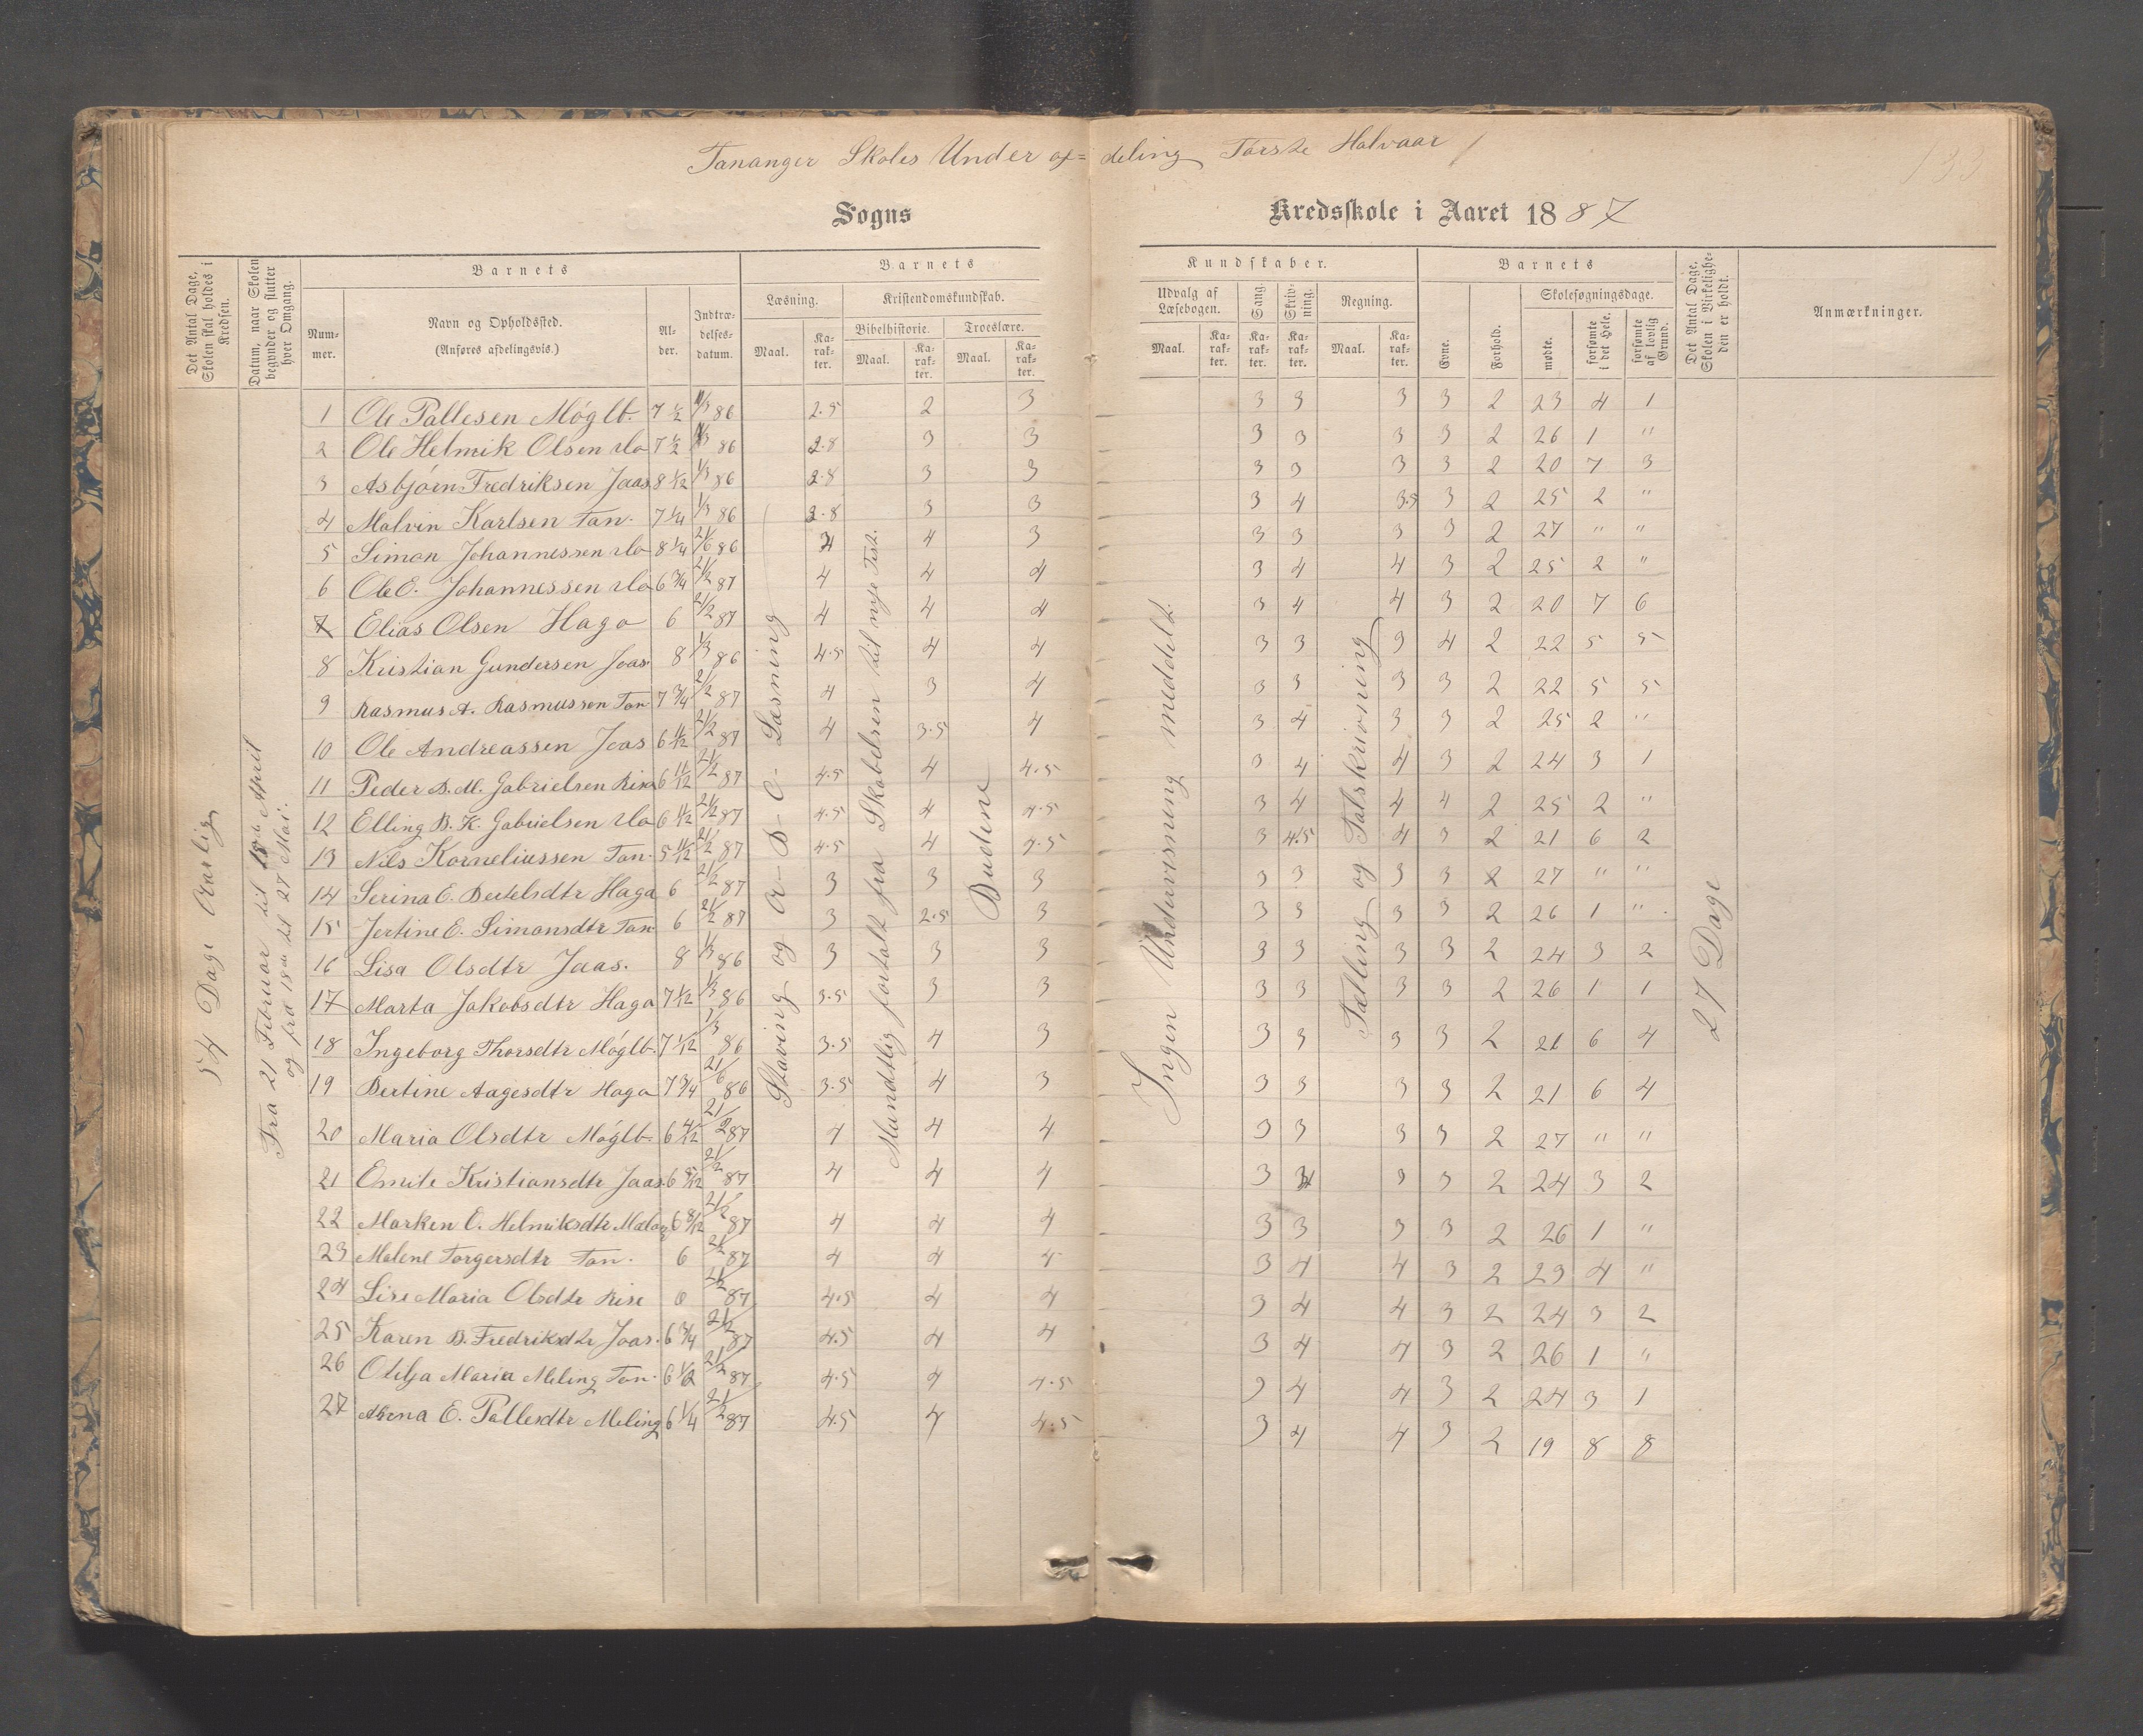 Tananger Skoles Underaf= deling Første Halvaar
133
Sogns Kredsskole i Aaret 1887
Det Antal Dage, Skolen skal holdes i Kredsen.
Datum, naar Skolen begynder og slutter hver Omgang.
Barnets
Nummer.
Navn og Opholdssted. (Anføres afdelingsvis.)
Alder.
Indtrædelsesdatum.
Barnets Kundskaber.
Læsning. Maal. Karakter.
Kristendomskundskab.
Bibelhistorie. Maal. Karakter.
Troeslære. Maal. Karakter.
Udvalg af Læsebogen. Maal. Karakter.
Sang. Karakter.
Skrivning. Karakter.
Regning. Maal. Karakter.
Barnets
Evne. Forhold.
Skolesøgningsdage. mødte. forsømte i det Hele. forsømte af lovlig Grund.
Det Antal Dage, Skolen i Virkeligheden er holdt.
Anmærkninger.
54 Dage Aarlig
Fra 21 Februar til April
og fra 18de til 27 Mai.
Staving og A-B-C-Læsning
Mundtlig fortalt fra Skabelsen til nye Test.
Budene
Ingen Undervisning meddelt.
Tælling og Talskrivning
27 Dage
1 Ole Pallesen Møglb. 7 1/2 1/3 86 2.5 2 3 3 3 3 3 2 23 4 1
2 Ole Helmik Olsen do 7 1/2 1/3 86 2.8 3 3 3 3 3 3 2 26 1 "
3 Asbjørn Fredriksen Jaas 8 1/12 1/3 86 2.8 3 3 3 3 3 3 2 20 7 3
4 Malvin Karlsen Tan. 7 1/4 1/3 86 2.8 3 3 3 4 3.5 3 2 25 2 "
5 Simon Johannessen do 8 1/4 21/6 86 4 4 3 3 3 3 3 2 27 " "
6 Ole O. Johannessen do 6 3/4 21/2 87 4 4 4 3 4 4 3 2 25 2 "
7 Elias Olsen Haga 6 21/2 87 4 4 4 3 4 4 3 2 20 7 6
8 Kristian Gundersen Jaas 8 1/3 86 4.5 4 4 3 3 3 4 2 22 5 5
9 Rasmus A. Rasmussen Tan 7 3/4 21/2 87 4 3 4 3 3 3 3 2 22 5 5
10 Ole Andreassen Jaas 6 11/12 21/2 87 4 3.5 4 3 4 3 3 2 25 2 "
11 Peder B. M. Gabrielsen Risa 6 11/12 21/2 87 4.5 4 4.5 3 4 4 3 2 24 3 1
12 Elling B. K. Gabrielsen do 6 11/12 21/2 87 4.5 4 4.5 3 4 4 4 2 25 2 "
13 Nils Korneliussen Tan. 5 11/12 21/2 87 4.5 4 4.5 3 4.5 4 3 2 21 6 2
14 Serina E. Bertelsdtr Haga 6 21/2 87 3 3 3 3 3 3 3 2 27 " "
15 Jertine E. Simonsdtr Tan 6 21/2 87 3 2.5 3 3 3 3 3 2 26 1 "
16 Lisa Olsdtr Jaas. 8 1/3 86 3 3 3 3 3 3 3 2 24 3 2
17 Marta Jakobsdtr Haga 7 1/12 1/3 86 3.5 3 3 3 3 3 3 2 26 1 1
18 Ingeborg Thorsdtr Møglb. 7 1/12 1/3 86 3.5 4 3 3 3 3 3 2 21 6 4
19 Bertine Aagesdtr Haga 7 3/4 21/6 86 3.5 4 3 3 3 3 3 2 21 6 4
20 Maria Olsdtr Møglb. 6 4/12 21/2 87 4 4 4 3 3 3 3 2 27 " "
21 Emile Kristiansdtr Jaas. 6 8/12 21/2 87 4 4 4 3 3 3 2 24 3 2
22 Marken E. Helmiksdtr 6 8/12 21/2 87 4 4 4 3 3 3 3 2 26 1 "
23 Malene Torgersdtr Tan. 6 21/2 87 4 4 4 3 4 4 3 2 23 4 "
24 Lise Maria Olsdtr Rise 6 21/2 87 4.5 4 4 3 4 4 3 2 24 3 2
25 Karen B. Fredriksdtr Jaas. 6 3/4 21/2 87 4.5 4 4 3 4 4 3 2 26 1 "
26 Otilja Maria Meling Tan. 6 1/2 21/2 87 4.5 4 4.5 3 4 4 3 2 24 3 1
27 E. Pallesdtr Meling 6 1/4 21/2 87 4.5 4 4.5 3 4 4 3 2 19 8 8